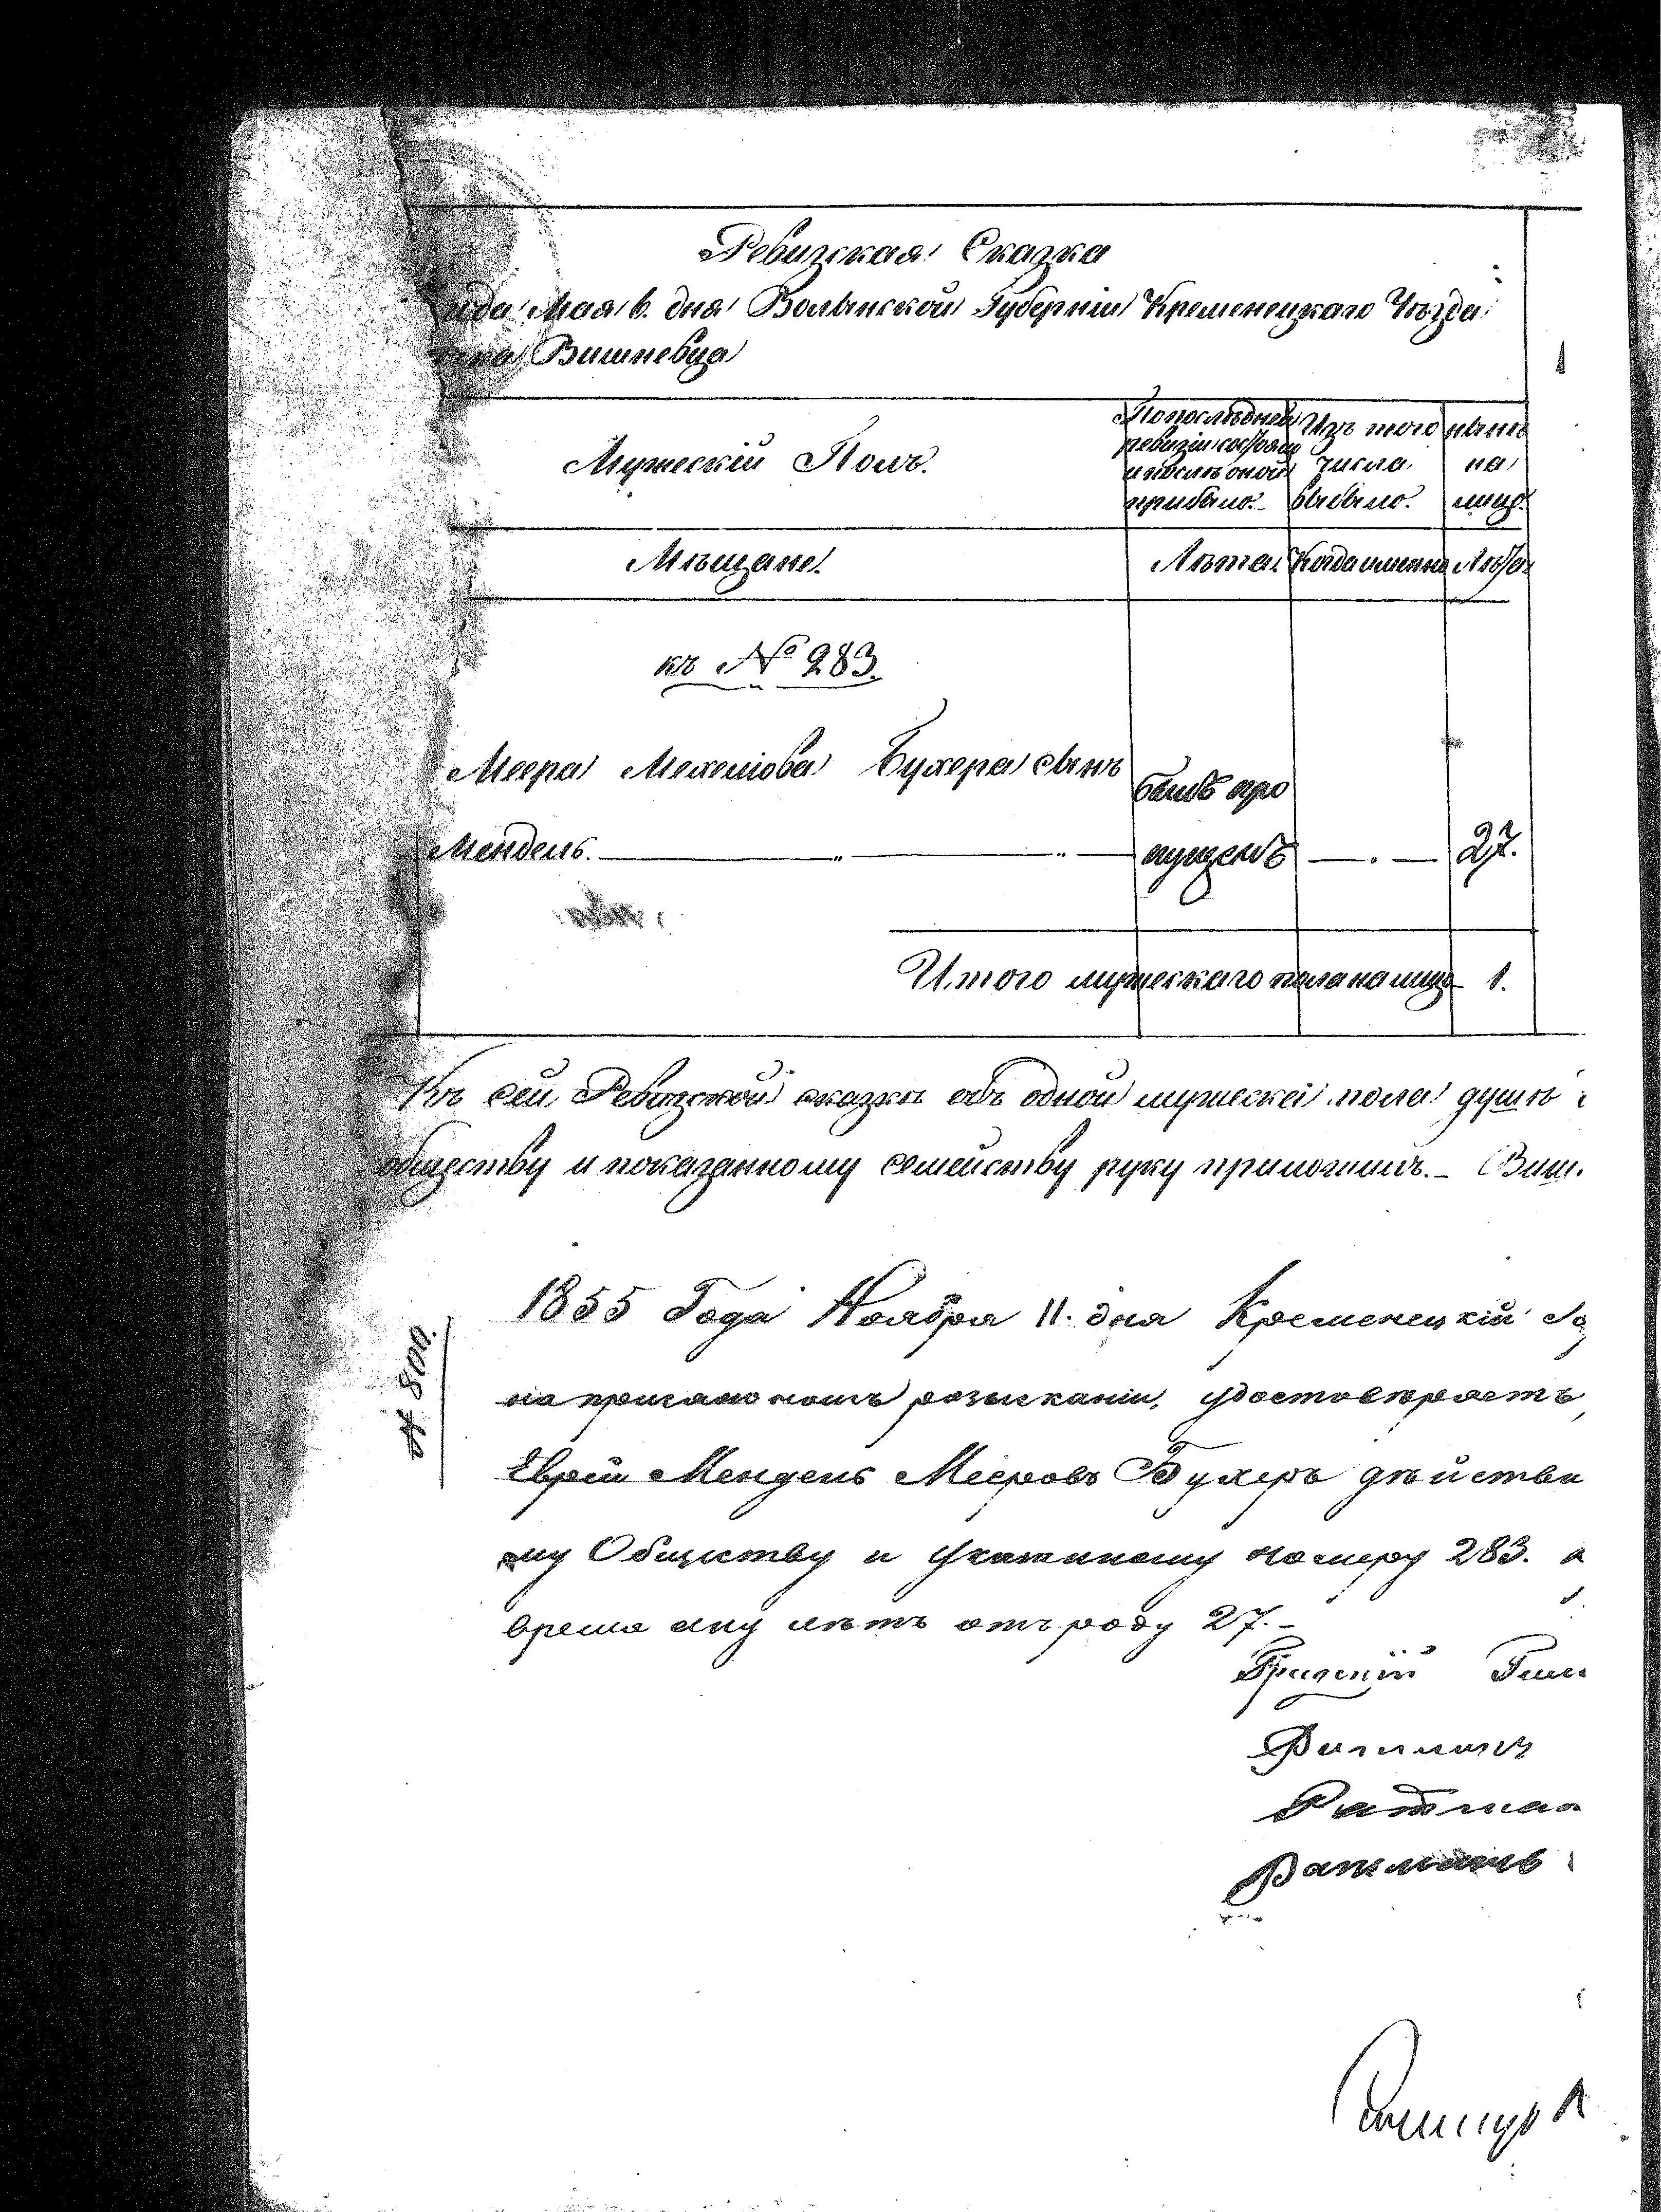 Ревизская Сказка
года Мая 6. дня Волынской Губерніи Кременецкаго Уѣзда
Вишневца
Мужескій Полъ.
По послѣдней ревизіи состояло и послѣ оной прибыло.
Изъ того числа выбыло.
нынѣ на лицо.
Мѣщане.
Лѣта.
Когда именно
Лѣта
къ № 283.
Меера Мехелiова Бухера сынъ
Мендель.
былъ про
пущенъ
27.
Итого мужескаго пола на лицо 1.
Къ сей Ревизской сказкѣ объ одной мужескаі пола душѣ
обществу и показанному семейству руку приложилъ. Виш.
№ 800.
1855 Года Ноября 11. дня Кременецкій
розысканіи, удостовѣряетъ,
Еврей Мендель Мееровъ Бухеръ дѣйстви
му Обществу и указанному номеру 283.
время ему лѣтъ отъ роду 27.
Ратман
Ратманъ